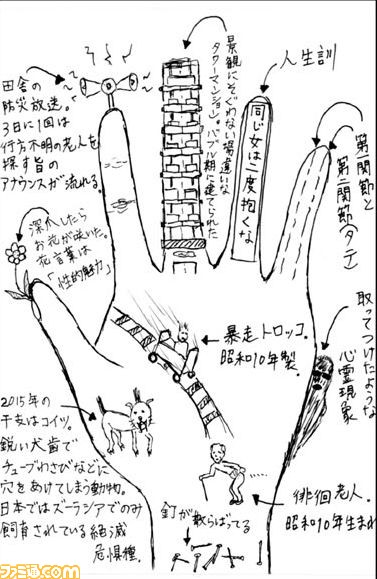 田舎の
防災放送。
3日に1回は
行方不明の老人を
探す旨の
アナウンスが流れる。
景観にそぐわない場違いな
タワーマンション。バブル期に建てられた
人生訓
同じ女は二度抱くな
第一関節と
第二関節(タテ)
深爪したら
お花が咲いた。
花言葉は
「性的魅力」
取ってつけたような
心霊現象
暴走トロッコ。
昭和10年製。
2015年の
干支はコイツ。
鋭い犬歯で
チューブわさびなどに
穴をあけてしまう動物。
日本ではズーラシアでのみ
飼育されている絶滅
危惧種。
徘徊老人。
昭和10年生まれ
釘が散らばってる
ファミ通.com